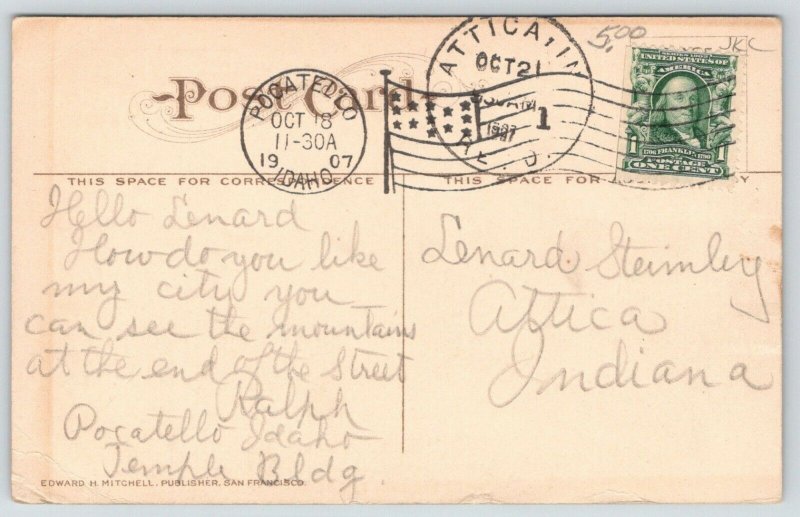 5.00
JKC
Post Card
POCATELLO
OCT 18
11-30A
1907
IDAHO
ATTICA, IN
OCT 21
1907
REC'D.
1
UNITED STATES OF
AMERICA
1706 FRANKLIN 1790
POSTAGE
1 ONE CENT 1
THIS SPACE FOR CORRESPONDENCE
THIS SPACE FOR
Hello Lenard
How do you like
my city you
can see the mountains
at the end of the Street
Ralph
Pocatello Idaho
Temple Bldg
Lenard Steimley
Attica
Indiana
EDWARD H. MITCHELL, PUBLISHER, SAN FRANCISCO.